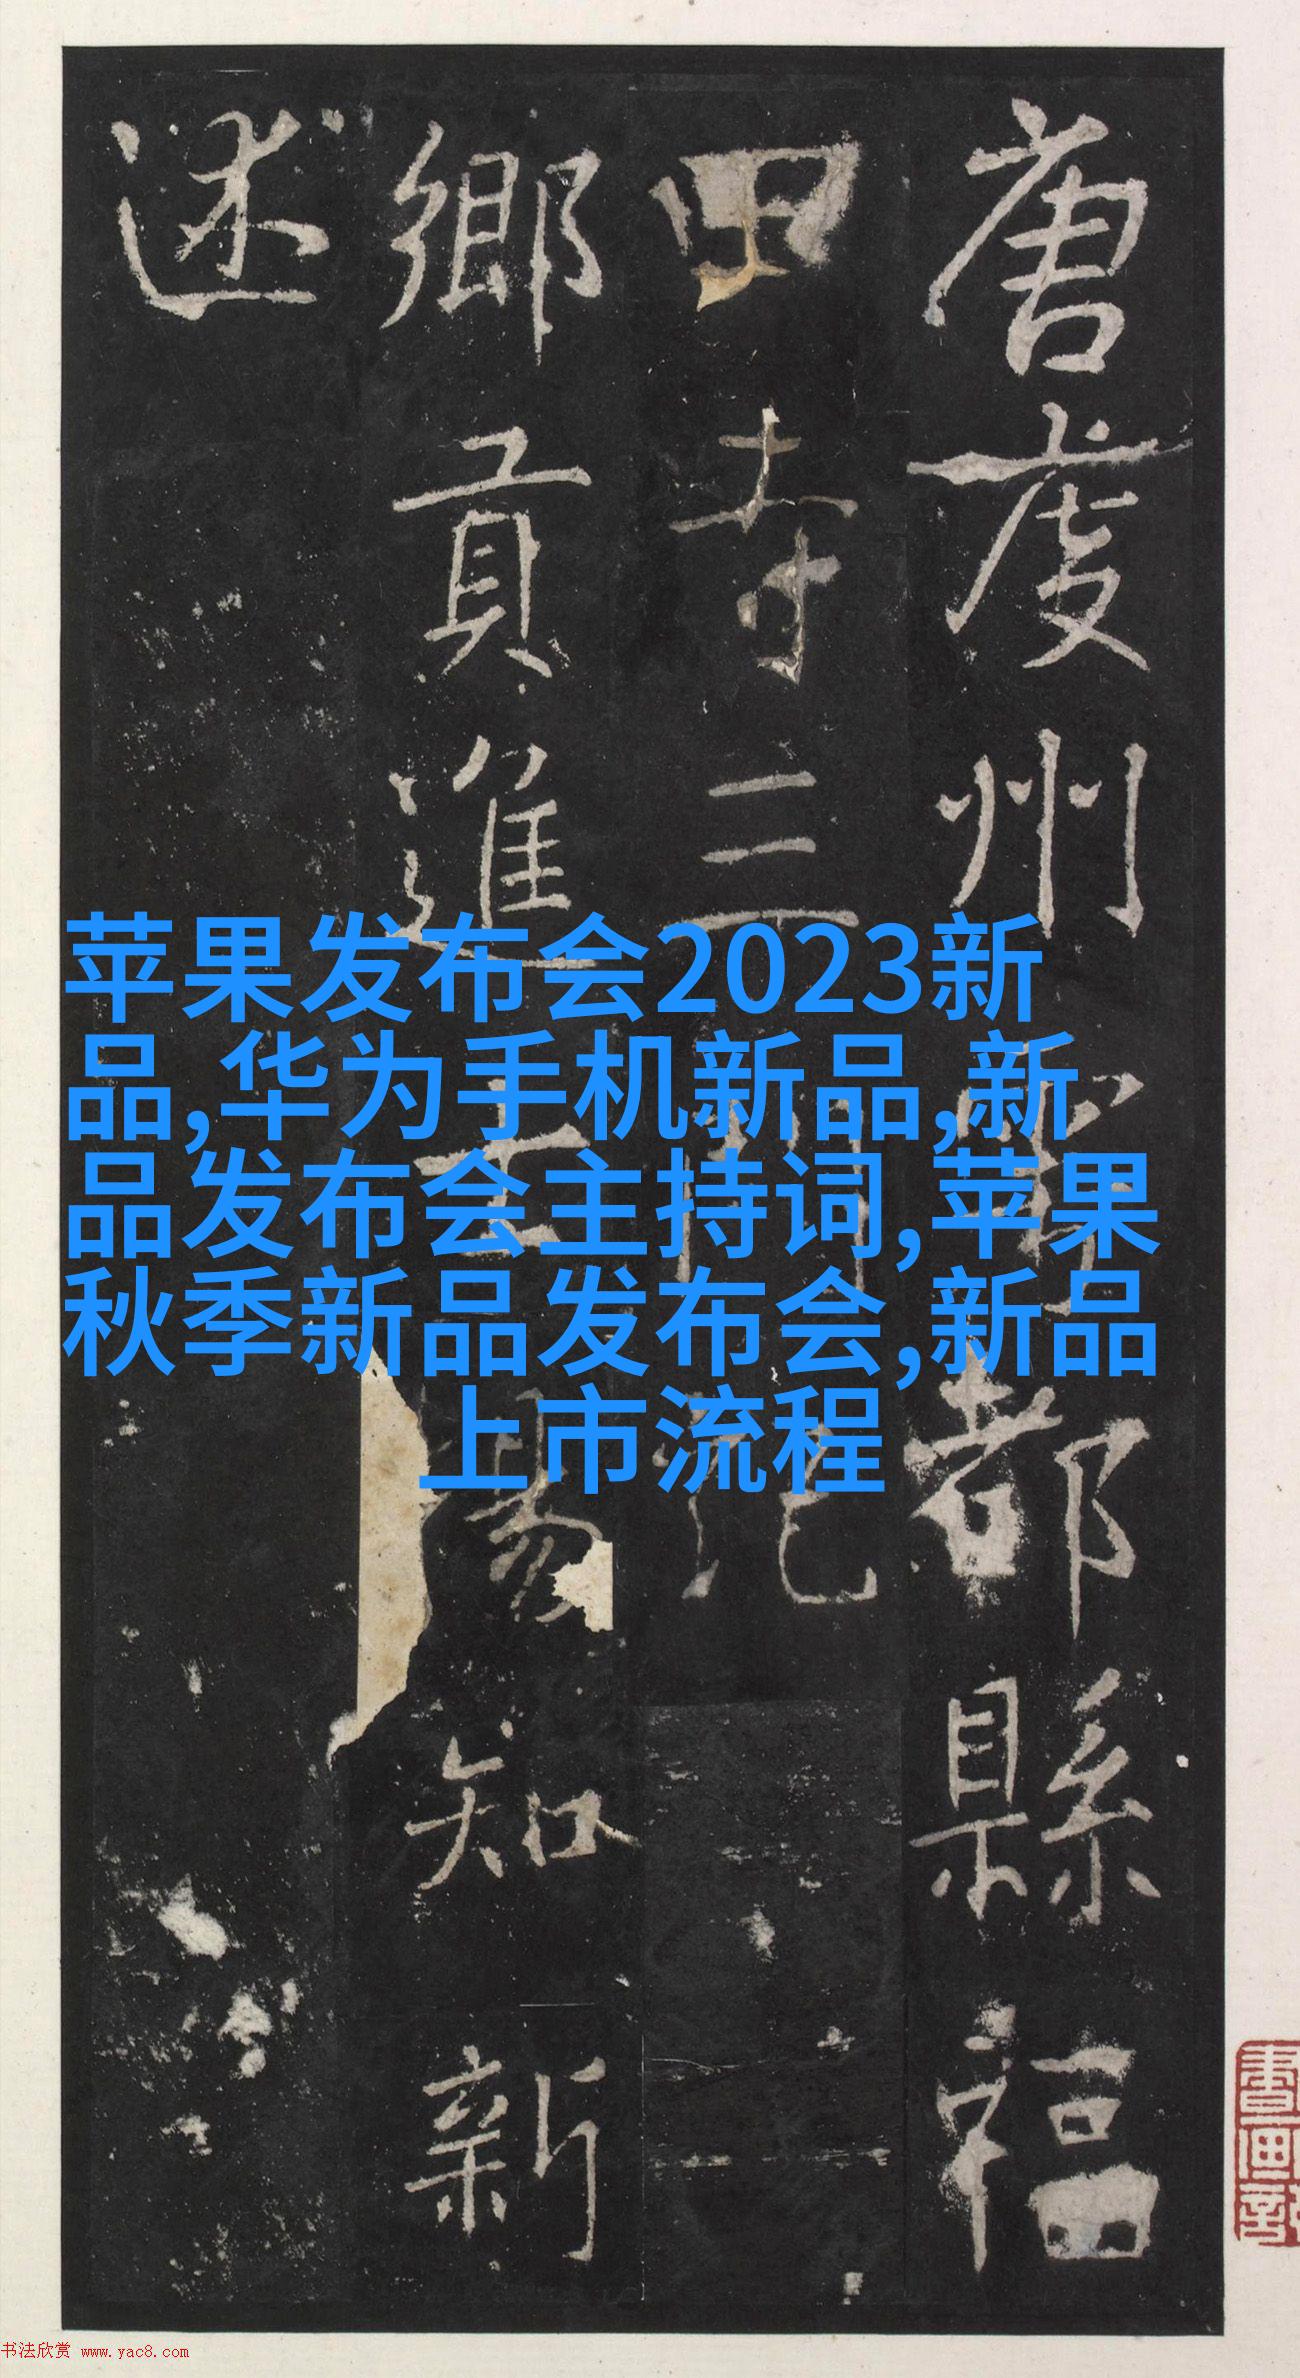 唐虔州雩都縣福
田寺三門記
鄉貢進士楊知新
述
苹果发布会2023新
品,华为手机新品,新
品发布会主持词,苹果
秋季新品发布会,新品
上市流程
书法欣赏 www.yac8.com